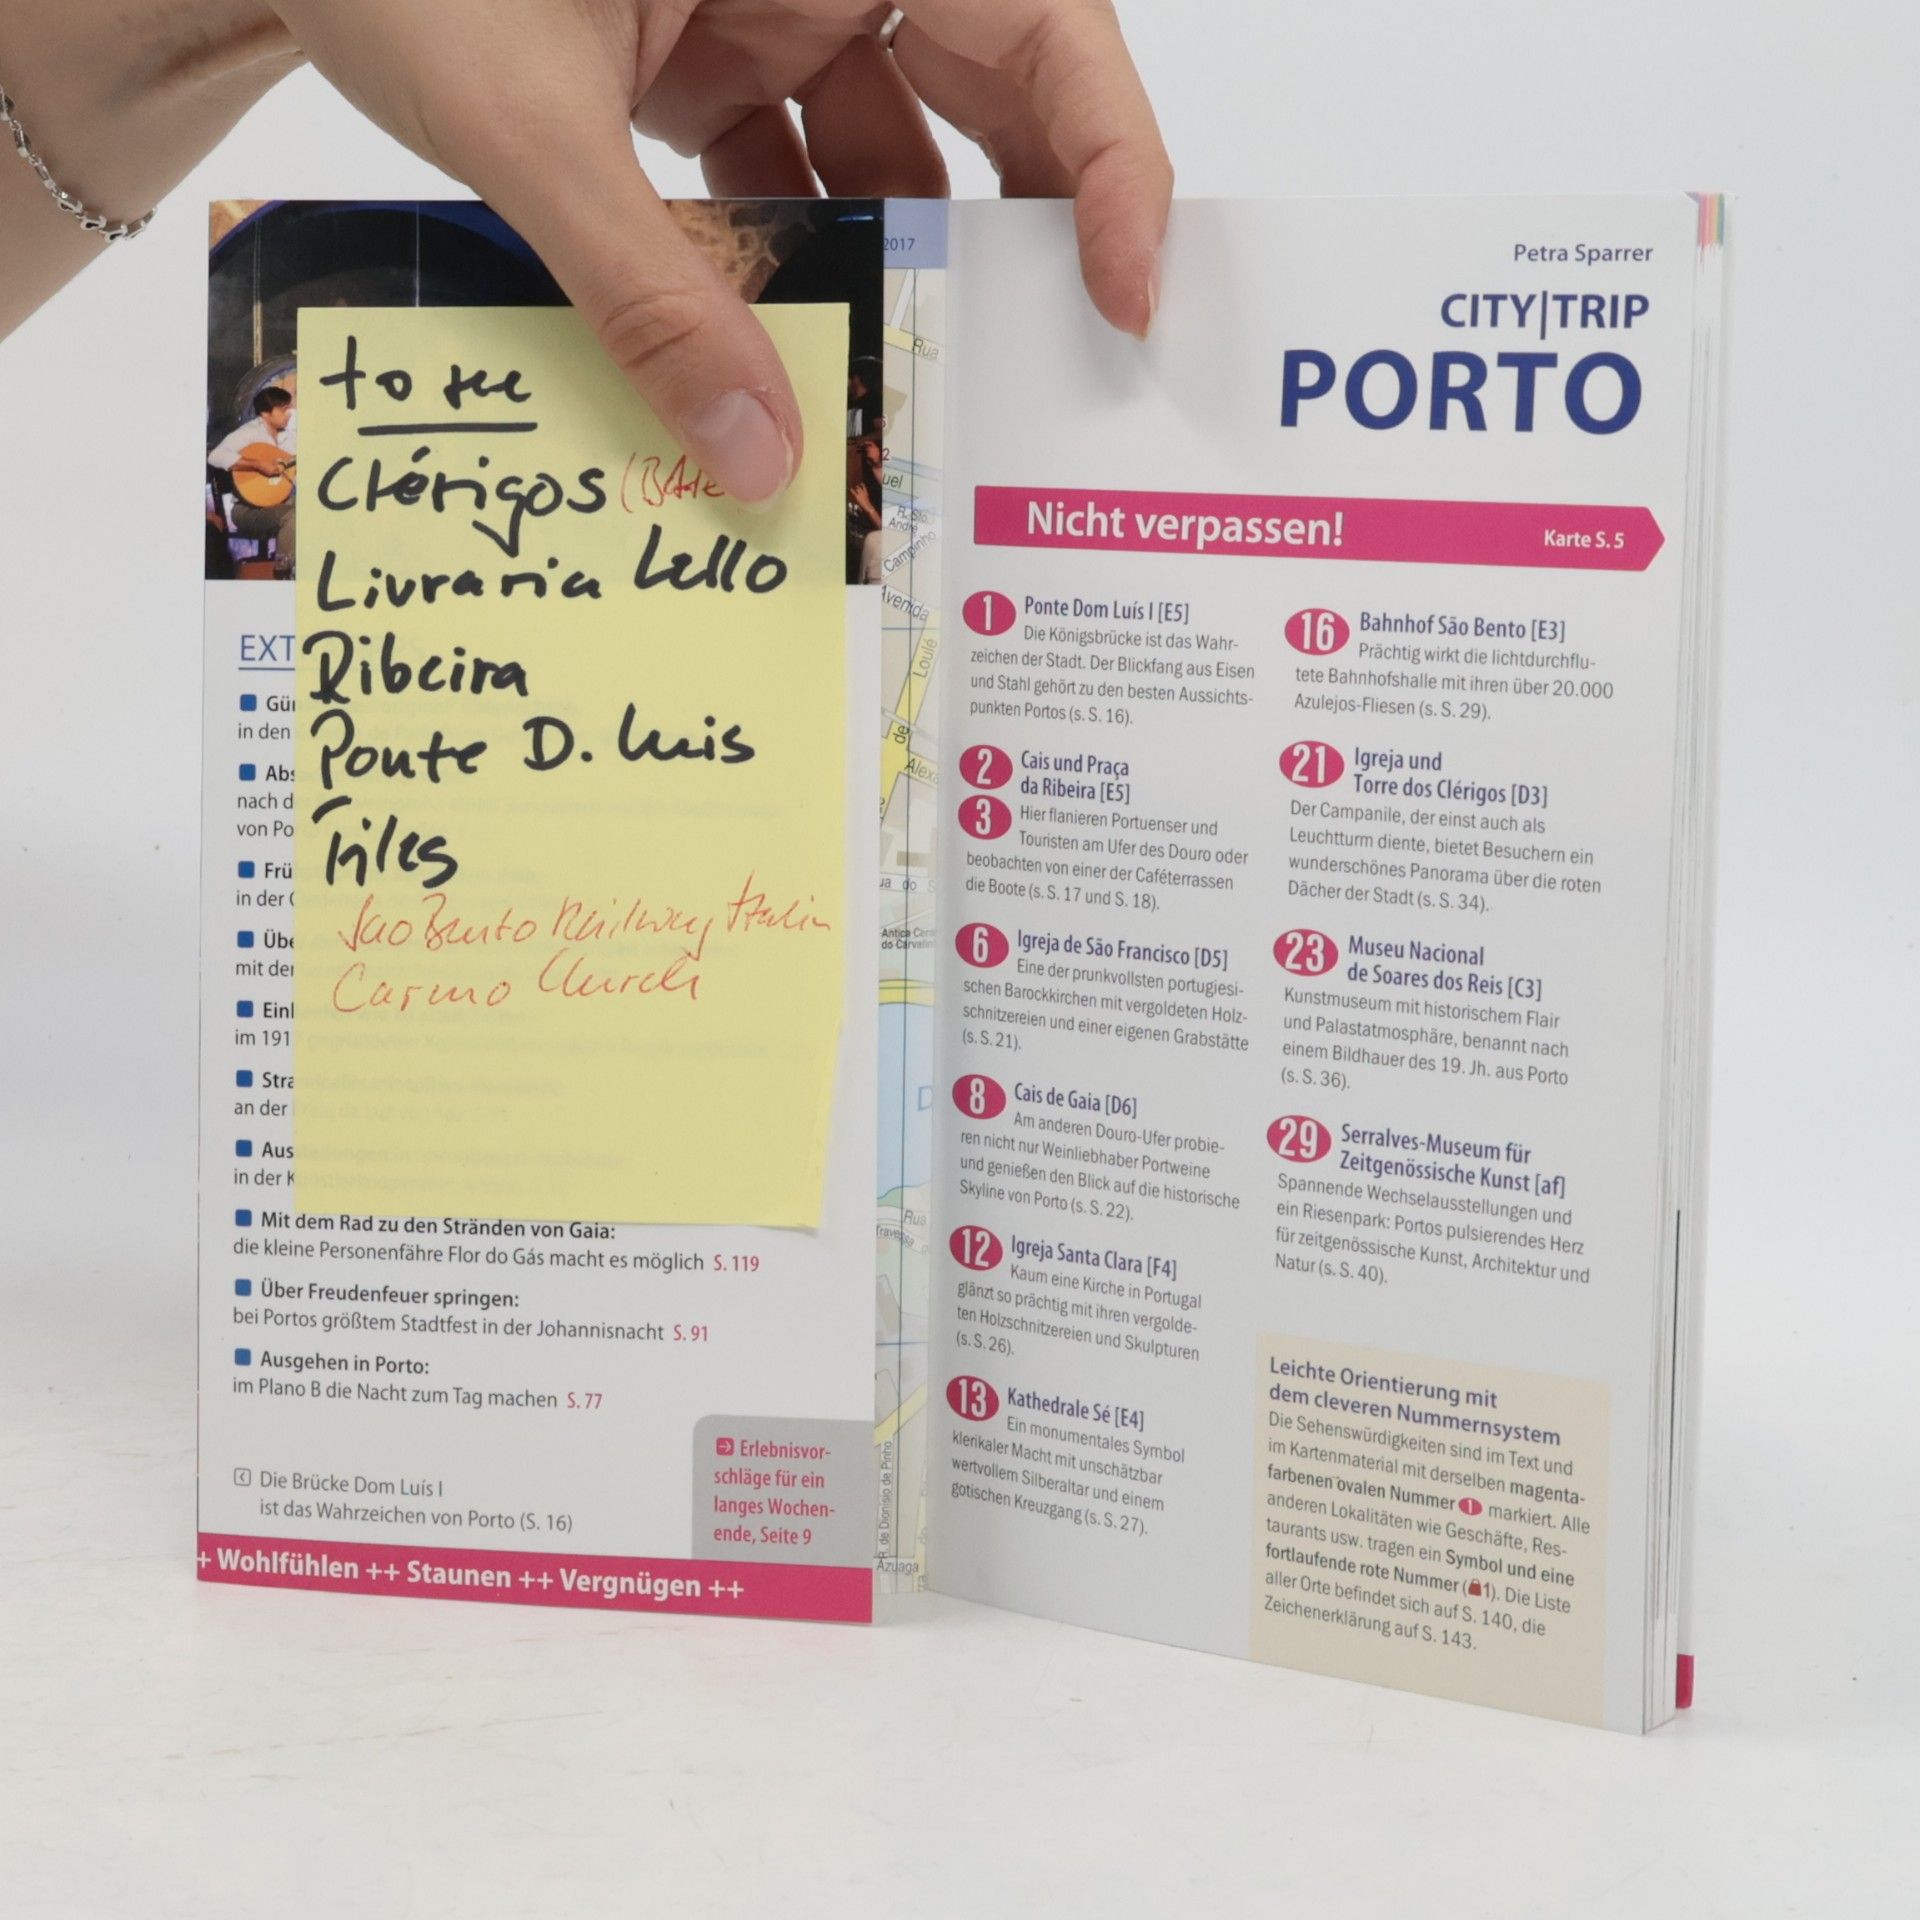 to see
Clérigos
Livraria Lello
Ribeira
Ponte D. Luis
Tiles
Sao Bento Railway Station
Carmo Church
EXT
Gü
in den
Abs
nach d
von Po
Frü
in der
Übe
mit der
Einl
im 191
Stra
an der
Aus
in der K
Mit dem Rad zu den Stränden von Gaia:
die kleine Personenfähre Flor do Gás macht es möglich S. 119
Über Freudenfeuer springen:
bei Portos größtem Stadtfest in der Johannisnacht S. 91
Ausgehen in Porto:
im Plano B die Nacht zum Tag machen S. 77
Erlebnisvor-
schläge für ein
langes Wochen-
ende, Seite 9
Die Brücke Dom Luís I
ist das Wahrzeichen von Porto (S. 16)
+ Wohlfühlen ++ Staunen ++ Vergnügen ++
2017
Rua
uel
R. Sto.
André
Campinho
Avenida
Loulé
de
Alexa
ua do S
Antiga Cera
do Carvalin
D
Rua
Travessa
R. de Dionísio de Pinho
Azuaga
Petra Sparrer
CITY|TRIP
PORTO
Nicht verpassen! Karte S. 5
1 Ponte Dom Luís I [E5]
Die Königsbrücke ist das Wahr-
zeichen der Stadt. Der Blickfang aus Eisen
und Stahl gehört zu den besten Aussichts-
punkten Portos (s. S. 16).
2 Cais und Praça
da Ribeira [E5]
3 Hier flanieren Portuenser und
Touristen am Ufer des Douro oder
beobachten von einer der Caféterrassen
die Boote (s. S. 17 und S. 18).
6 Igreja de São Francisco [D5]
Eine der prunkvollsten portugiesi-
schen Barockkirchen mit vergoldeten Holz-
schnitzereien und einer eigenen Grabstätte
(s. S. 21).
8 Cais de Gaia [D6]
Am anderen Douro-Ufer probie-
ren nicht nur Weinliebhaber Portweine
und genießen den Blick auf die historische
Skyline von Porto (s. S. 22).
12 Igreja Santa Clara [F4]
Kaum eine Kirche in Portugal
glänzt so prächtig mit ihren vergolde-
ten Holzschnitzereien und Skulpturen
(s. S. 26).
13 Kathedrale Sé [E4]
Ein monumentales Symbol
klerikaler Macht mit unschätzbar
wertvollem Silberaltar und einem
gotischen Kreuzgang (s. S. 27).
16 Bahnhof São Bento [E3]
Prächtig wirkt die lichtdurchflu-
tete Bahnhofshalle mit ihren über 20.000
Azulejos-Fliesen (s. S. 29).
21 Igreja und
Torre dos Clérigos [D3]
Der Campanile, der einst auch als
Leuchtturm diente, bietet Besuchern ein
wunderschönes Panorama über die roten
Dächer der Stadt (s. S. 34).
23 Museu Nacional
de Soares dos Reis [C3]
Kunstmuseum mit historischem Flair
und Palastatmosphäre, benannt nach
einem Bildhauer des 19. Jh. aus Porto
(s. S. 36).
29 Serralves-Museum für
Zeitgenössische Kunst [af]
Spannende Wechselausstellungen und
ein Riesenpark: Portos pulsierendes Herz
für zeitgenössische Kunst, Architektur und
Natur (s. S. 40).
Leichte Orientierung mit
dem cleveren Nummernsystem
Die Sehenswürdigkeiten sind im Text und
im Kartenmaterial mit derselben magenta-
farbenen ovalen Nummer 1 markiert. Alle
anderen Lokalitäten wie Geschäfte, Res-
taurants usw. tragen ein Symbol und eine
fortlaufende rote Nummer (1). Die Liste
aller Orte befindet sich auf S. 140, die
Zeichenerklärung auf S. 143.